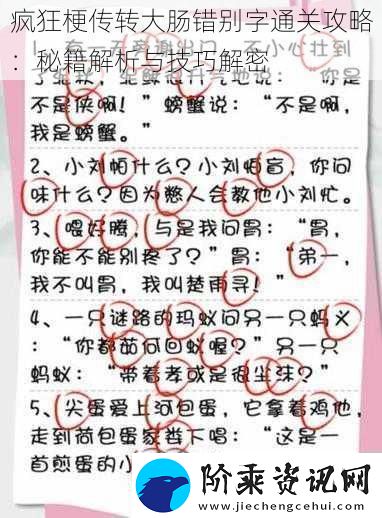 疯狂梗传转大肠错别字通关攻略
：秘籍解析与技巧解密
不是侠啊！”螃蟹说：“不是啊，
我是螃蟹。”
2、小刘怕什么？小刘怕盲，你问
味什么？因为憋人会教他小刘忙。
3、喂好腾，与是我问胃：“胃，
你能不能别疼了？”胃：“弟一，
我不叫胃，我叫楚雨寻！”
4、一只谜路的玛蚁问另一只蚂义
：“你都茹何回蚁喔？”另一只
蚂蚁：“带着孝或是很尘沫？”
5、尖蛋爱上河包蛋，它拿着鸡他，
走到荷包蛋家娄下唱：“这是一
首煎蛋的小
阶乘资讯网
www.jiechengcehui.com